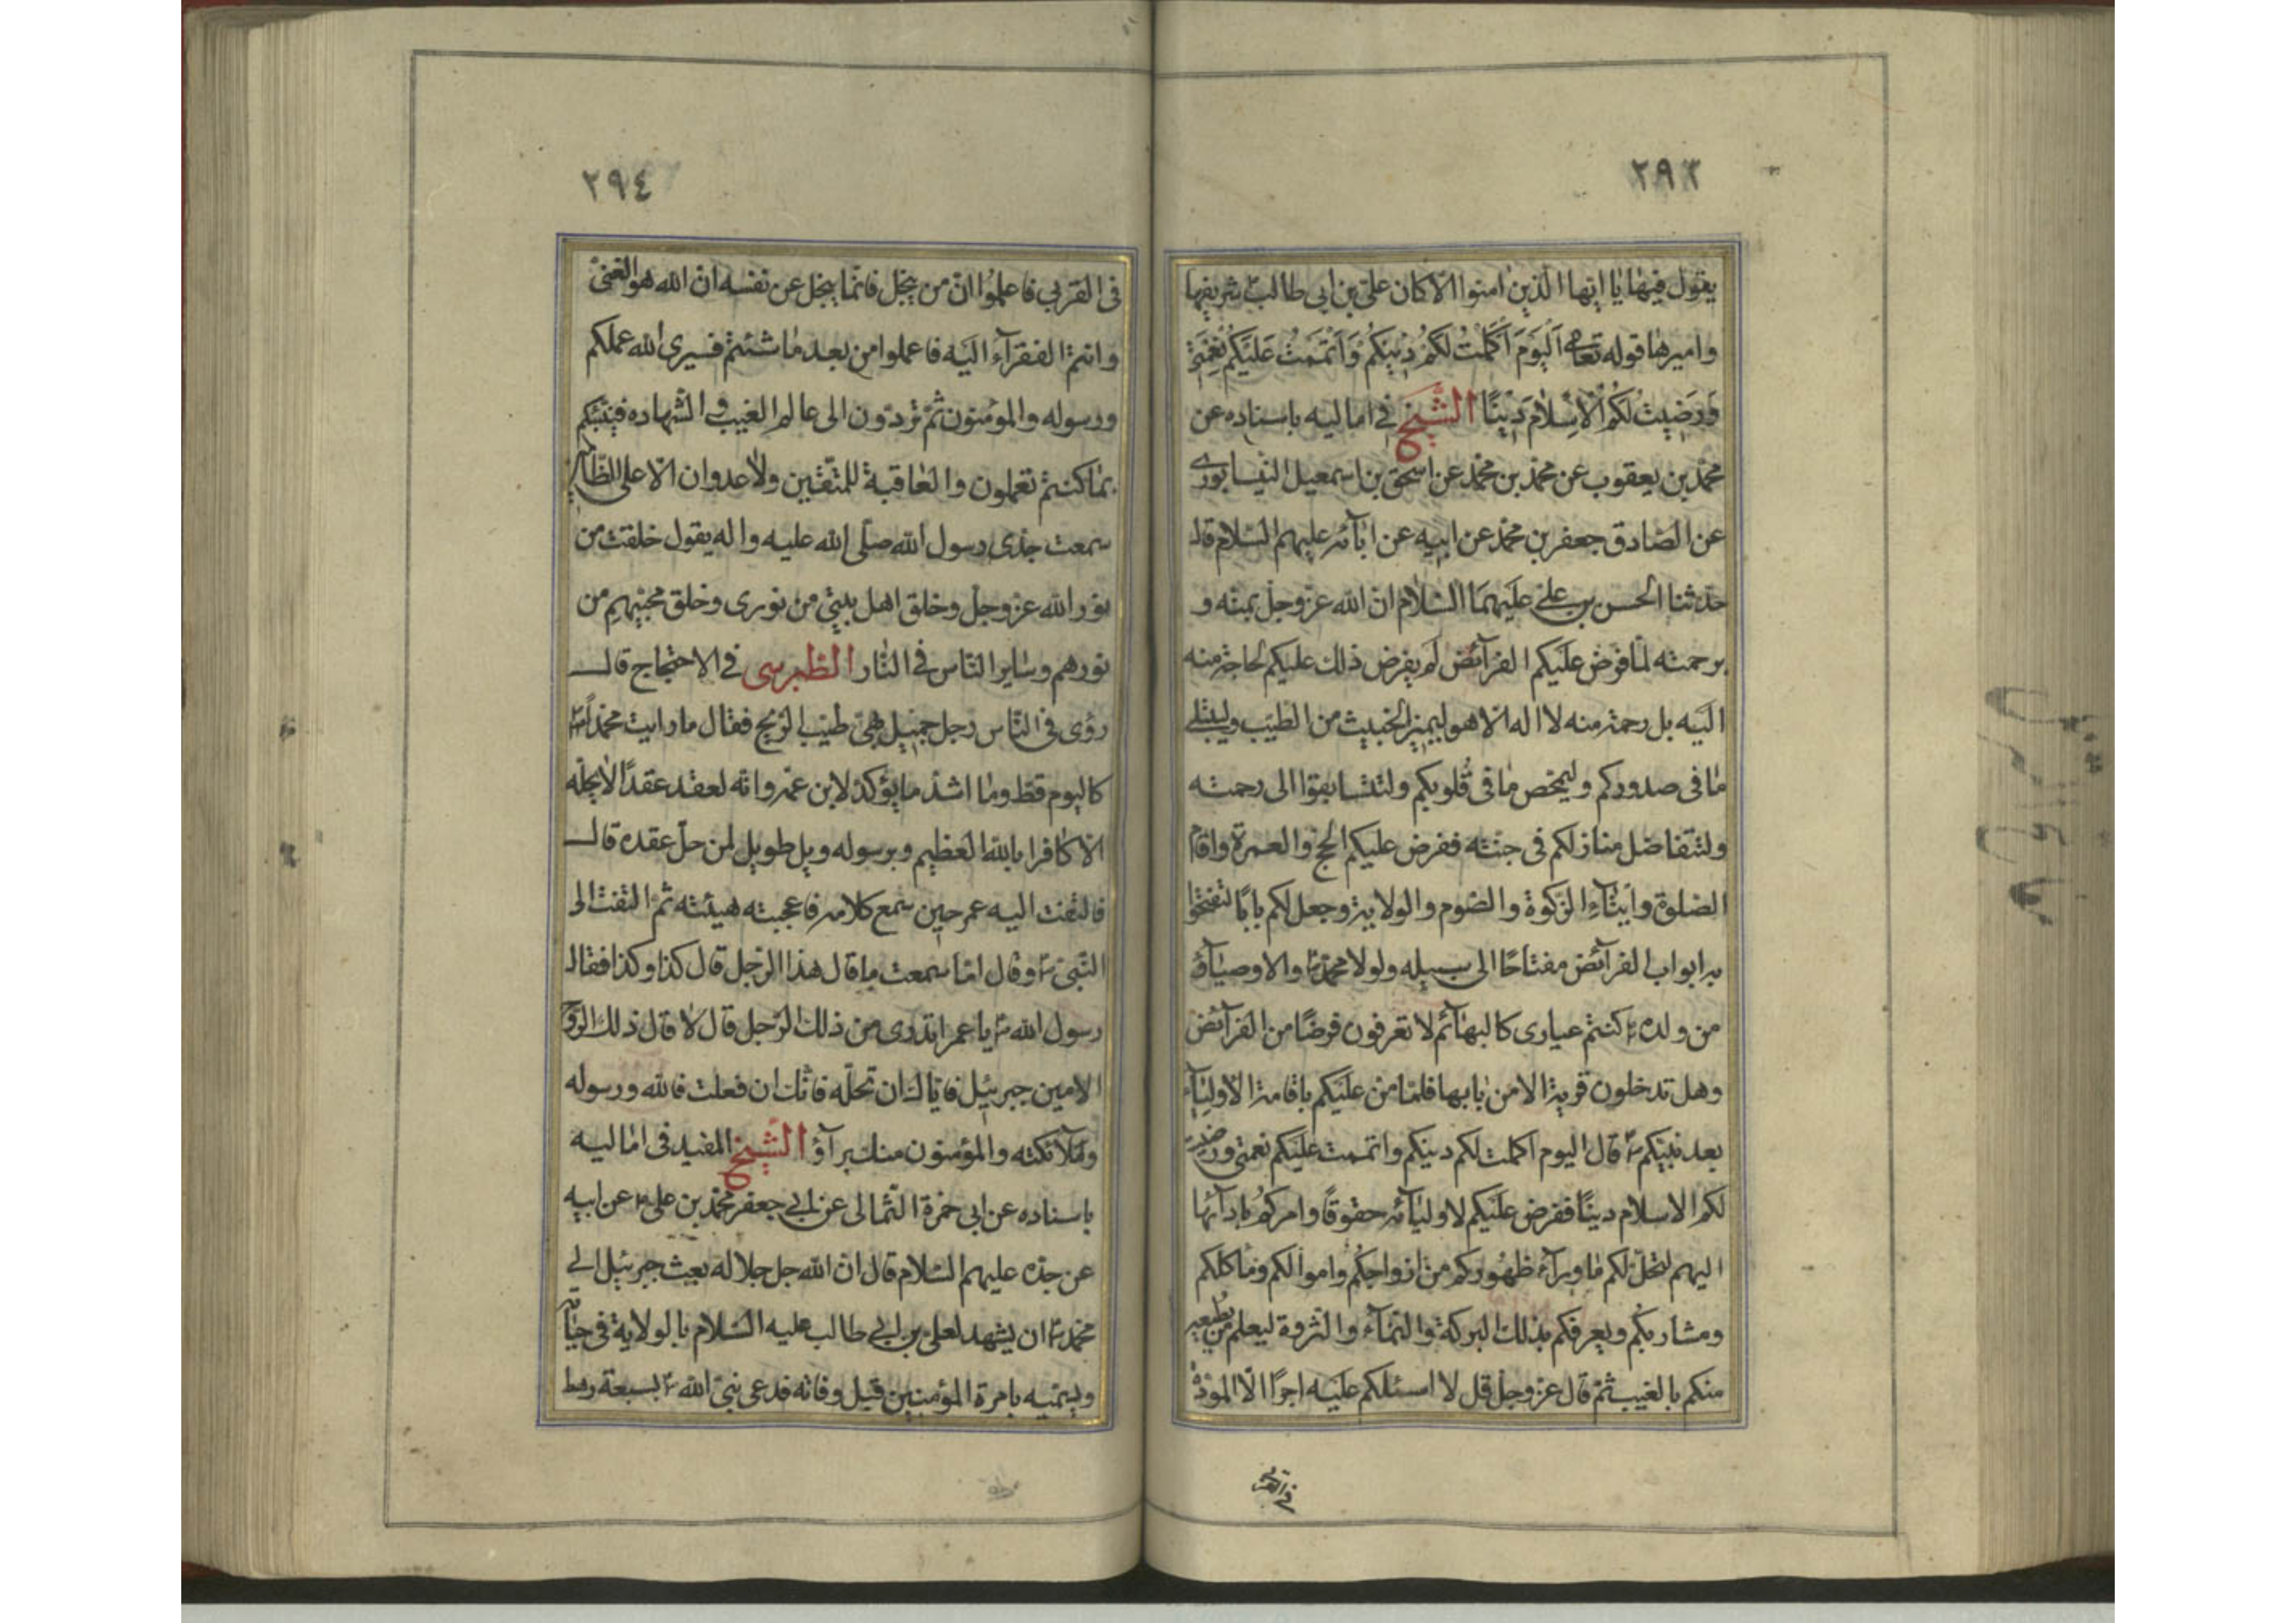 ٢٩٣
يقول فيها يا ايها الذين امنوا الا كان علي بن ابي طالب شريفها
واميرها قوله تعالى اَلْيَوْمَ اَكْمَلْتُ لَكُمْ دِينَكُمْ وَاَتْمَمْتُ عَلَيْكُمْ نِعْمَتِي
وَرَضِيتُ لَكُمُ الْاِسْلَامَ دِينًا الشيخ في اماليه باسناده عن
محمد بن يعقوب عن محمد بن محمد عن اسحق بن اسمعيل النيسابوري
عن الصادق جعفر بن محمد عن ابيه عن ابآئه عليهم السلام قال
حدثنا الحسن بن علي عليهما السلام ان الله عز وجل بمنه و
برحمته لما فرض عليكم الفرآئض لم يفرض ذلك عليكم لحاجة منه
اليه بل رحمة منه لا اله الا هو ليميز الخبيث من الطيب وليبتلي
ما في صدوركم وليمحص ما في قلوبكم ولتتسابقوا الى رحمته
ولتتفاضل منازلكم في جنته ففرض عليكم الحج والعمرة واقام
الصلوة وايتآء الزكوة والصوم والولاية وجعل لكم بابًا لتفتحوا
به ابواب الفرآئض مفتاحًا الى سبيله ولولا محمد ص والاوصيآء
من ولده ع كنتم حيارى كالبهآئم لا تعرفون فرضًا من الفرآئض
وهل تدخلون قرية الا من بابها فلما من عليكم باقامة الاوليآء
بعد نبيكم ص قال اليوم اكملت لكم دينكم واتممت عليكم نعمتي ورضيت
لكم الاسلام دينًا ففرض عليكم لاوليآئه حقوقًا وامركم بادآئها
اليهم لتحل لكم ما ورآء ظهوركم من ازواجكم واموالكم وماكلكم
ومشاربكم ويعرفكم بذلك البركة والنمآء والثروة ليعلم من يطيعه
منكم بالغيب ثم قال عز وجل قل لا اسئلكم عليه اجرًا الا المودة
في القربى
٢٩٤
في القربى فاعلموا ان من يبخل فانما يبخل عن نفسه ان الله هو الغني
وانتم الفقرآء اليه فاعملوا من بعد ما شئتم فسيرى الله عملكم
ورسوله والمؤمنون ثم تردون الى عالم الغيب و الشهاده فينبئكم
بما كنتم تعملون والعاقبة للمتقين ولا عدوان الا على الظالمين
سمعت جدي رسول الله صلى الله عليه واله يقول خلقت من
نور الله عز وجل وخلق اهل بيتي من نوري وخلق محبيهم من
نورهم وساير الناس في النار الطبرسي في الاحتجاج قال
رؤى في الناس رجل جميل بهي طيب الريح فقال ما رايت محمدًا ص
كاليوم قط وما اشد ما يؤكد لابن عمه وانه لعقد عقدًا لا يحله
الا كافرا بالله العظيم وبرسوله ويل طويل لمن حل عقده قال
فالتفت اليه عمر حين سمع كلامه فاعجبته هيئته ثم التفت الى
النبي ص وقال اما سمعت ما قال هذا الرجل قال كذا وكذا فقال
رسول الله ص يا عمر اتدري من ذلك الرجل قال لا قال ذلك الروح
الامين جبرئيل فاياك ان تحله فانك ان فعلت فالله ورسوله
وملآئكته والمؤمنون منك برآؤ الشيخ المفيد في اماليه
باسناده عن ابي حمزة الثمالي عن ابي جعفر محمد بن علي ع عن ابيه
عن جده عليهم السلام قال ان الله جل جلاله بعث جبرئيل الى
محمد ص ان يشهد لعلي بن ابي طالب عليه السلام بالولاية في حياته
ويسميه بامرة المؤمنين قبل وفاته فدعى نبي الله ص بسبعة رهط